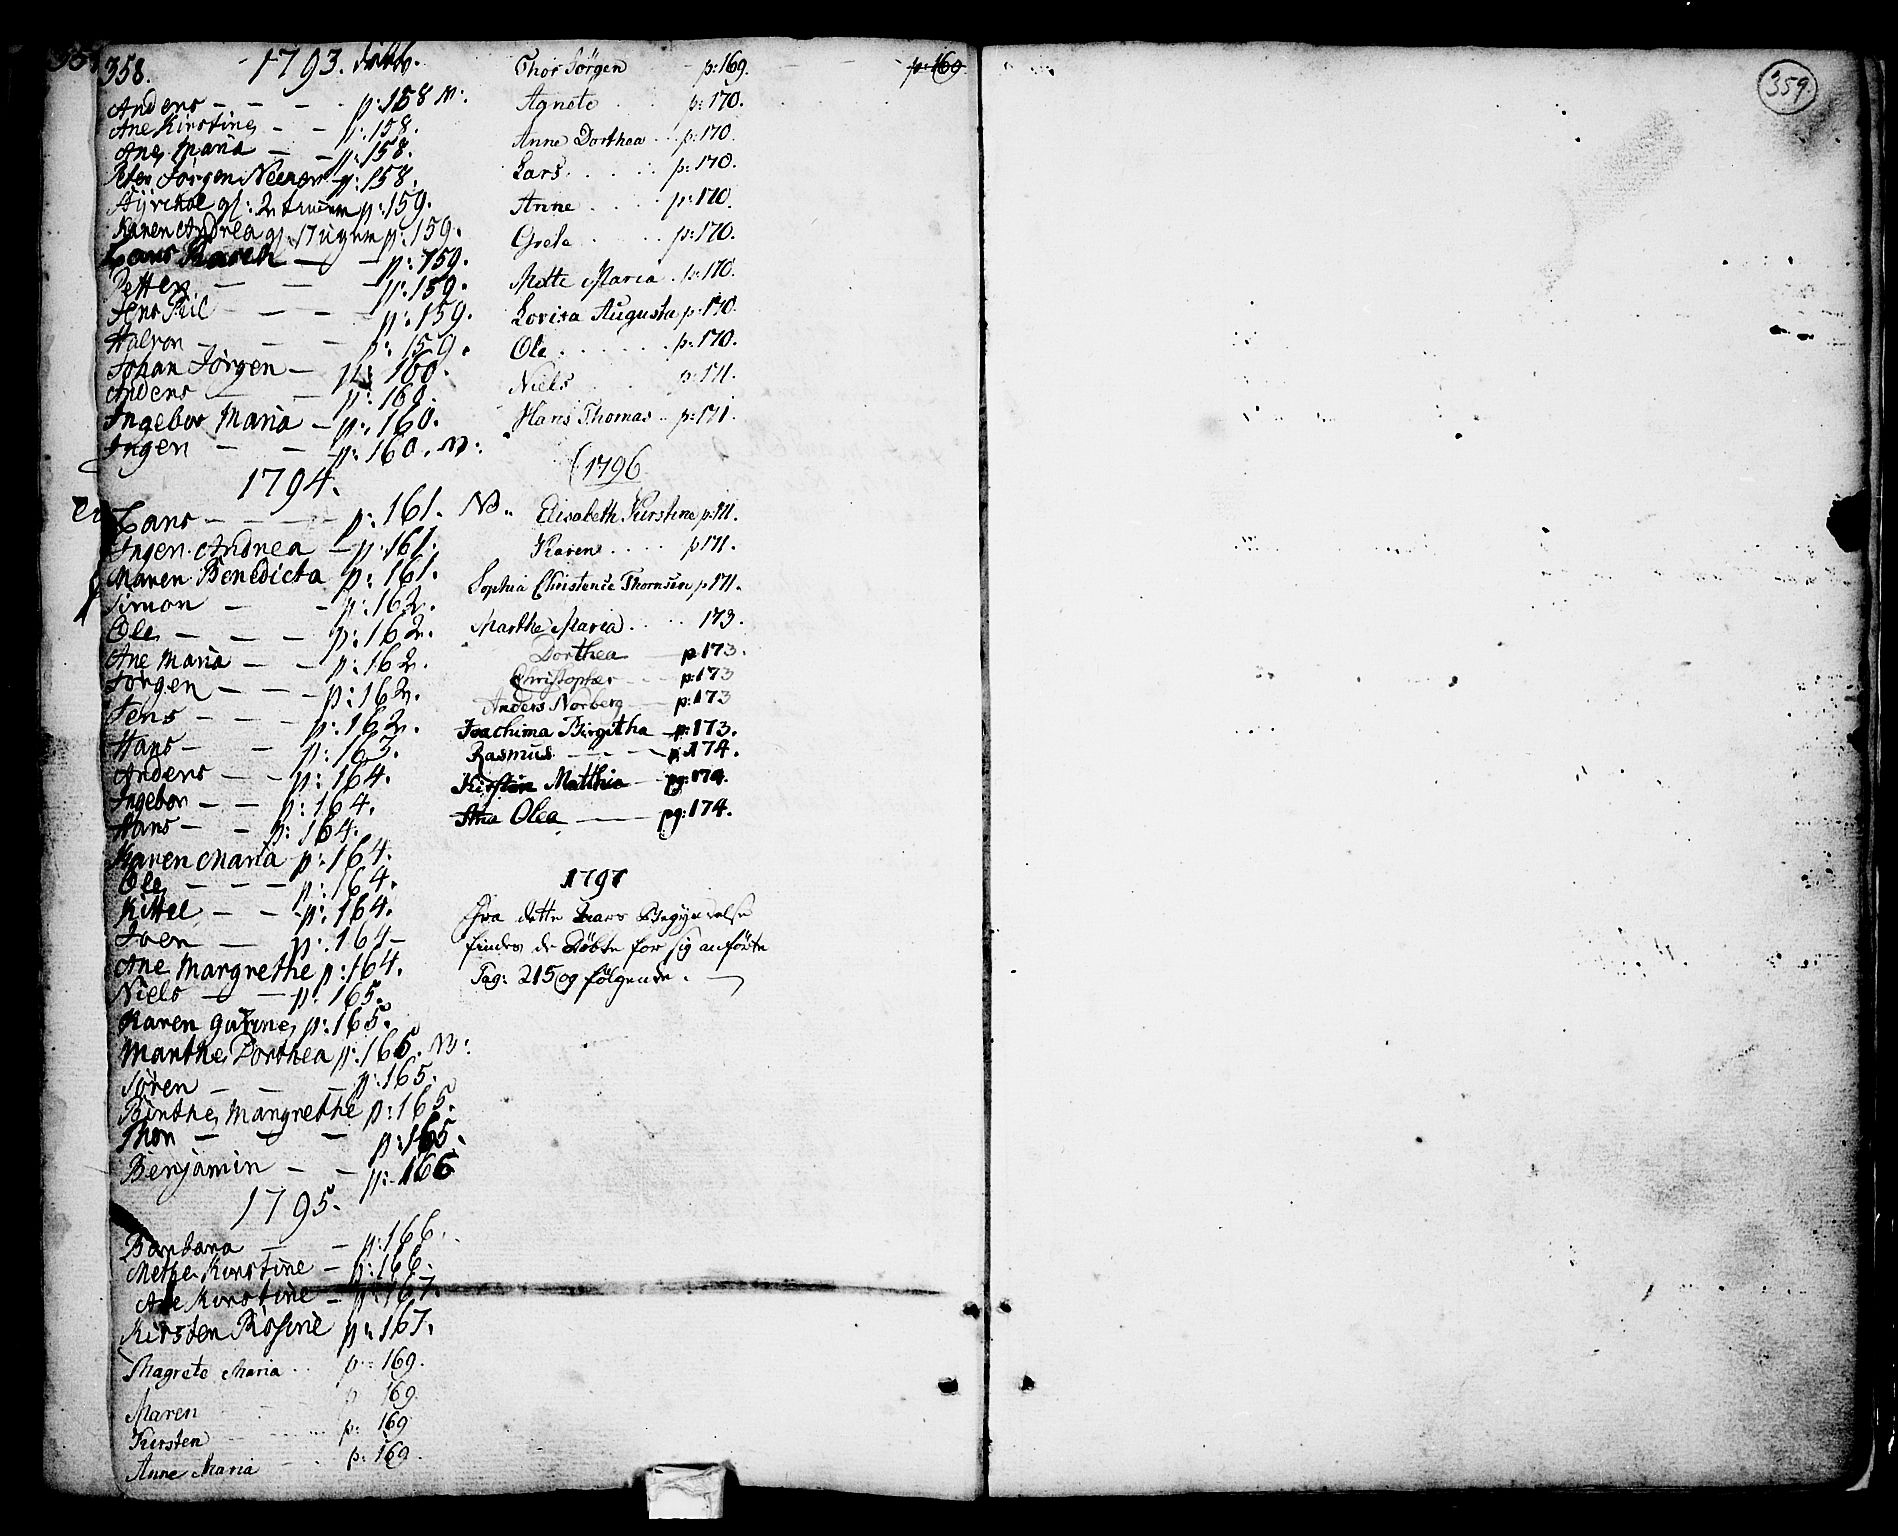 358.
1793. døbte.
Anders — — — p: 158 N:
Ane Kirstine — — p: 158.
Ane Maria — — p: 158.
Peter Jørgen p: 158.
p: 159.
Karen Andrea p: 159.
Lars — — p: 159.
Petter — — — p: 159.
Jens Kil — — — p: 159.
Halvor — — — p: 159.
Johan Jørgen — p: 160.
Anders — — p: 160.
Ingebor Maria — p: 160.
Ingen — — p: 160. N:
1794.
Lars — — — — p: 161. NB.
Ingen Andrea — p: 161.
Maren Benedicta p: 161.
Simon — — p: 162.
Ole — — — p: 162.
Ane Maria — — p: 162.
Jørgen — — — p: 162.
Jens — — — p: 162.
Hans — — p: 163.
Anders — — p: 164.
Ingebor — — p: 164.
Hans — — p: 164.
Karen Maria p: 164.
Ole — — — p: 164.
Kittel — — p: 164.
Joen — — p: 164
Ane Margrethe p: 164.
Niels — — p: 165.
Karen Gurine p: 165.
Marthe Dorthea p: 165. N:
Søren — — — p: 165.
Birthe Margrethe p: 165.
Thor — — — p: 165.
Benjamin — — p: 166
1795.
Barbara — — p: 166.
Methe Kirstine — p: 166.
Ane Kirstine — p: 167.
Kirsten Rosine p: 167.
Magrete Maria . . p: 169.
Maren p 169
Kirsten p: 169
Anne Maria p: 169.
Thor Jørgen p: 169.
p: 169
Agnete p: 170.
Anne Dorthea . . p: 170.
Lars . . . . p: 170.
Anne . . . . p: 170.
Grete . . . p: 170.
Mette Maria . p: 170.
Lovisa Augusta p: 170.
Ole . . . . . p: 170.
Niels p: 171.
Hans Thomas . . p: 171.
1796
Elisabeth Kirstine p: 171.
Karen . . . . p 171.
Sophia Christence Thomsen p 171.
Marthe Maria . . . . 173.
Dorthea — p 173.
Christopher — — p: 173
Anders Norberg — p: 173
Joachima Birgitha — p: 173.
Rasmus — — — p: 174.
Kirsten Matthia — pg: 174.
Ana Olea — pg: 174.
1797
Fra dette Aars Begyndelse
findes de Døbte for sig anførte
Pag: 215 og følgende. —
359.